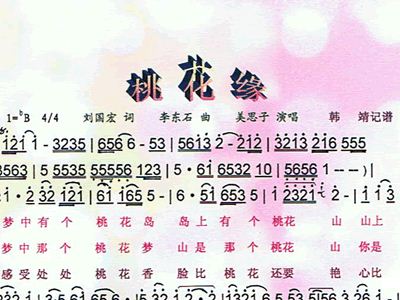 桃花缘
1=♭B 4/4 刘国宏 词 李东石 曲 姜思子 演唱 韩 靖记谱
121 1 - 3235 | 656 6 - 53 | 5613 2 - 2 - | 323 1216 555
3563 | 5 5535 55556 11 | 5 · 61 6532 3210 | 5656 1 - - - ) |
1 · 2 32 1 - 1 - | 61 165 5 - 5 - | 1 · 2 323 2 3 1 | 2321 2
梦中有个 桃花岛 岛上有个桃花 山 山上
梦中那个 桃花梦 山是那个桃花 山 你是
感受处处 桃花香 脸比桃花还要 艳 心比